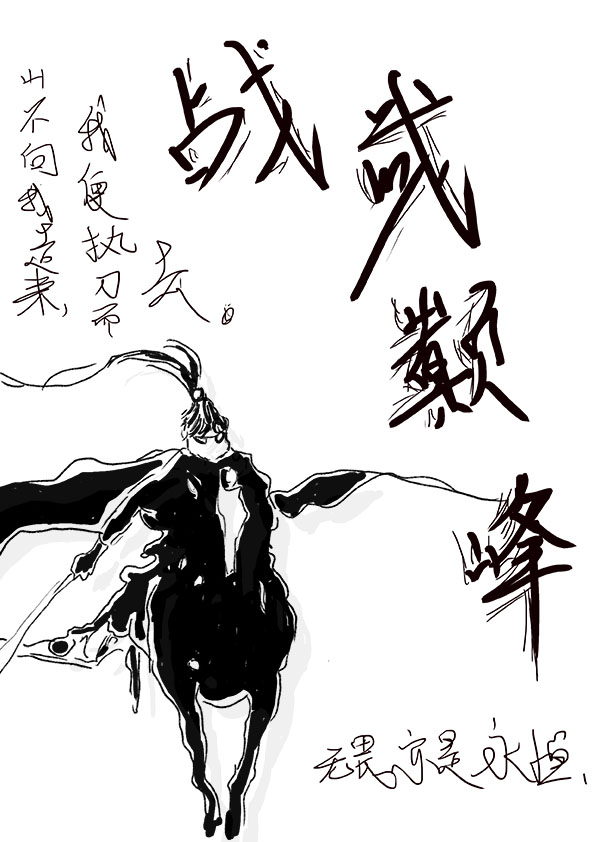 战武颠峰
山不向我走来，
我便执刀而
去。
无畏亦是永恒，